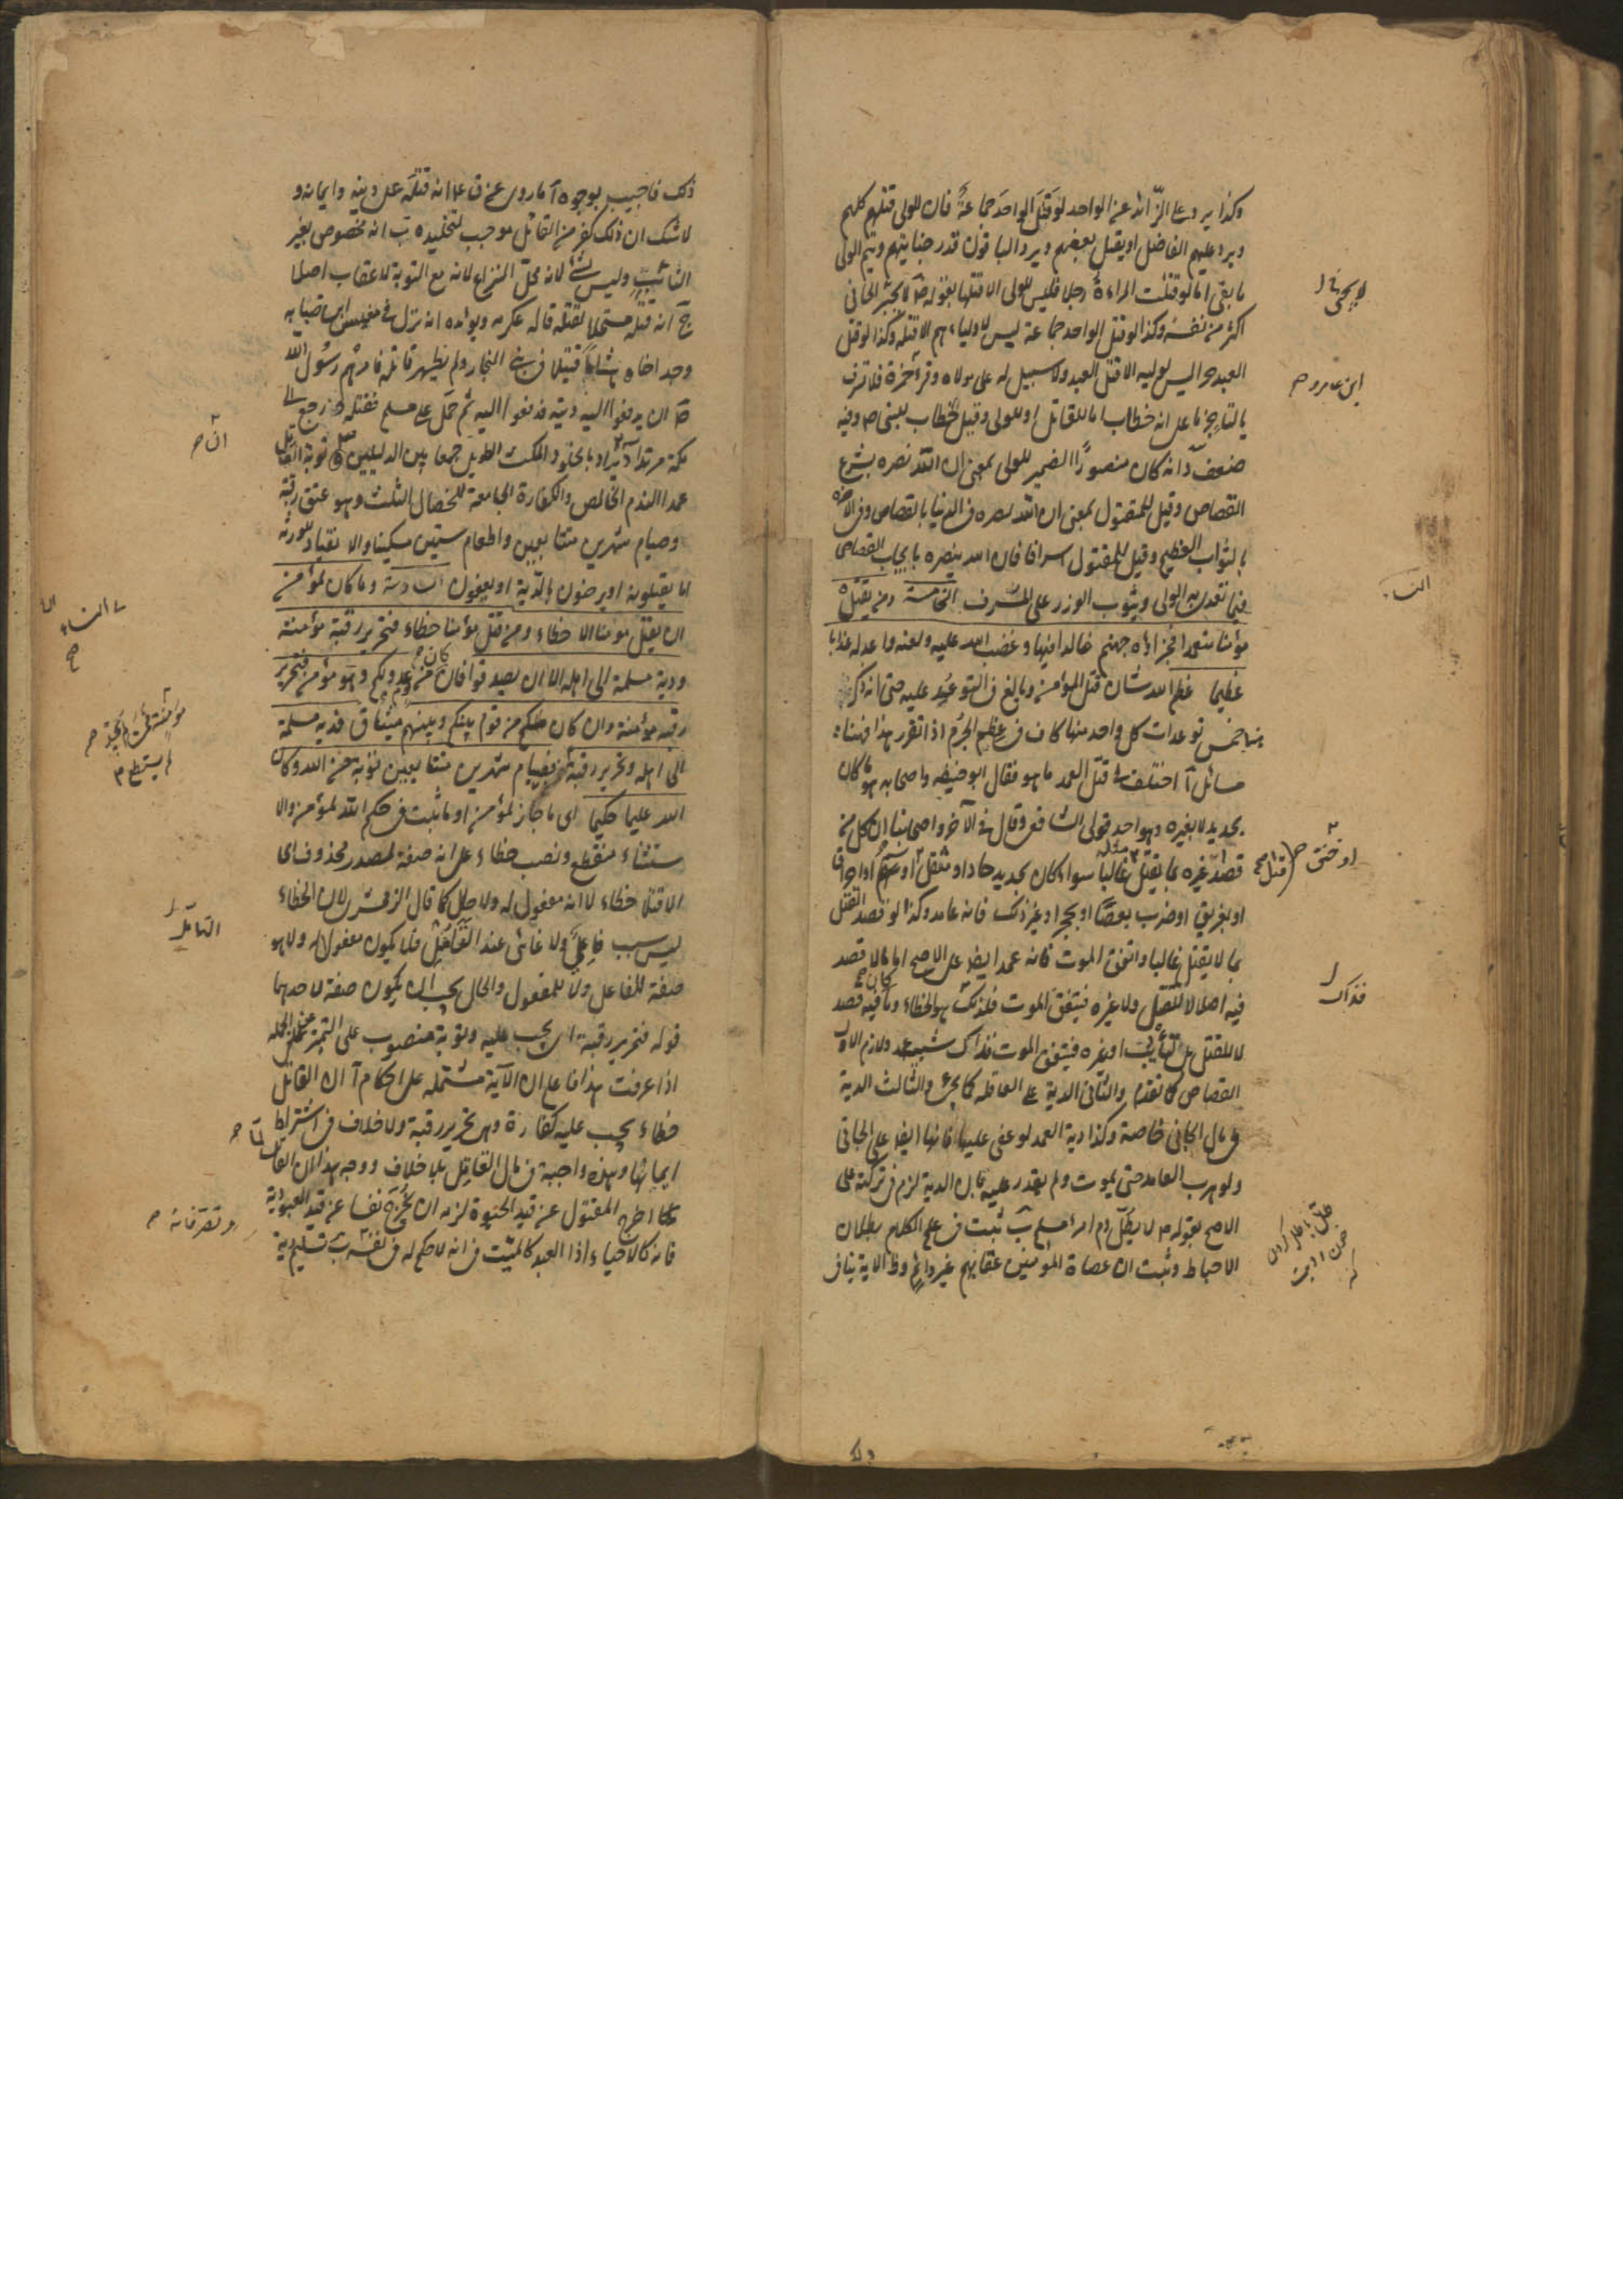 وكذا يرد على الزائد عن الواحد لو قتل الواحد جماعة فان للولى قتلهم كلهم
ويرد عليهم الفاضل او يقتل بعضهم ويرد الباقون قدر جنايتهم ويتم الولى
ما بقى اما لو قتلت المراءة رجلا فليس للولى الا قتلها لقوله ص لا يجنى الجانى
اكثر من نفسه وكذا لو قتل الواحد جماعة ليس لاوليائهم الا قتله وكذا لو قتل
العبد حرا ليس لوليه الا قتل العبد ولا سبيل له على مولاه وقرأ حمزة فلا تسرف
بالتاء جزما على انه خطاب اما للقاتل او للولى وقيل الخطاب للنبى ص وفيه
ضعف د انه كان منصورا الضمير للولى بمعنى ان الله نصره بشرع
القصاص وقيل للمقتول بمعنى ان الله نصره فى الدنيا بالقصاص وفى الاخرة
بالثواب العظيم وقيل للمقتول اسرافا فان الله ينصره بايجاب القصاص
فيما تعدى به الولى ويثوب الوزر على المسرف الخامسة ومن يقتل
مؤمنا متعمدا فجزاؤه جهنم خالدا فيها وغضب الله عليه ولعنه واعد له عذابا
عظيما عظم الله شان قتل المؤمن وبالغ فى التوعيد عليه حتى انه ذكر
هنا خمس توعدات كل واحد منها كاف فى عظم الجرم اذا تقرر هذا فهنا
مسائل آ اختلف فى قتل العمد ما هو فقال ابو حنيفه واصحابه هو ما كان
بحديد لا بغيره وهو احد قولى الشافعى وقال فى الآخر واصحابنا ان كل من
قصد غيره بما يقتل مثله غالبا سواء كان بحديد حاد او مثقل او سهم او احراق
او تغريق او ضرب بعصا او بحجر او غير ذلك فانه عامد وكذا لو قصد القتل
بما لا يقتل غالبا واتفق الموت فانه عمد ايضا على الاصح اما ما لا قصد
فيه اصلا لا للقتل ولا غيره فيتفق الموت فلذلك هو الخطاء وما كان فيه قصد
لا للقتل بل لتأديب او غيره فيتفق الموت فذاك شبيه عمد ولازم الاول
القصاص كما تقدم والثانى الدية على العاقله كما يجىء والثالث الدية
فى مال الجانى خاصة وكذا دية العمد لو عفى عليها فانها ايضا على الجانى
ولو هرب العامد حتى يموت ولم يقدر عليه فان الدية لزم فى تركته على
الاصح لقوله ص لا يطل دم امرء مسلم ب ثبت فى علم الكلام بطلان
الاحباط وثبت ان عصاة المؤمنين عقابهم غير دائم وظ الاية ينافى
لا يجنى
ابن عامر و ص
او خنق ص
قتل
فذاك
ذلك فاجيب بوجوه آ ما روى عن ق ع انه قتله على دينه وايمانه و
لا شك ان ذلك كفر من القاتل موجب لتخليده ب انه مخصوص بغير
التائب وليس بشىء لانه محل النزاع لانه مع التوبة لا عقاب اصلا
ج انه قتله مستحلا لقتله قاله عكرمه ويؤيده انه نزل فى مقيس ابن ضبابه
وجد اخاه هشاما قتيلا فى بنى النجار ولم يظهر قاتله فامرهم رسول الله
ص ان يدفعوا اليه ديته فدفعوا اليه ثم حمل على مسلم فقتله و رجع الى
مكة مرتدا د يراد بالخلود المكث الطويل جمعا بين الدليلين توبة القاتل
عمدا الندم الخالص والكفارة الجامعة للخصال الثلث وهو عتق رقبة
وصيام شهرين متتابعين واطعام ستين مسكينا والانقياد للورثة
اما يقتلونه او يرضون بالدية او يعفون السادسة وما كان لمؤمن
ان يقتل مومنا الا خطاء ومن قتل مؤمنا خطاء فتحرير رقبة مؤمنة
ودية مسلمة الى اهله الا ان يصدقوا فان كان من عدو لكم وهو مؤمن فتحرير
رقبه مؤمنة وان كان من قوم بينكم وبينهم ميثاق فدية مسلمة
الى اهله وتحرير رقبة فصيام شهرين متتابعين توبة من الله وكان
الله عليما حكيما اى ما جاز لمؤمن او ما ثبت فى حكم الله لمؤمن والا
ستثناء منقطع ونصب خطاء على انه صفة لمصدر محذوف اى
الا قتلا خطاء لا انه مفعول له ولا حال كما قال الزمخشرى لان الخطاء
ليس سبب فاعلى ولا غائى عند التأمل فلا يكون مفعولا له ولا هو
صفة للفاعل ولا للمفعول والحال يجب ان يكون صفة لاحدهما
قوله فتحرير رقبة اى يجب عليه وتوبة منصوب على التميز عن الجمله
اذا عرفت هذا فاعلم ان الآية مشتمله على احكام آ ان القاتل
خطاء يجب عليه كفارة وهى تحرير رقبة ولا خلاف فى اشتراط
ايمانها وهذه واجبة فى مال القاتل بلا خلاف ووجه هذا ان القاتل
اخرج المقتول عن قيد الحيوة لزمه ان يخرج نفسا عن قيد العبودية
فانه كالاحياء اذا العبد كالميت فى انه لا حكم له فى نفسه ب تسليم دية
ان ص
النساء
مؤمنة
لم يستطع
التأمل
لما ص
وتصرفاته ص